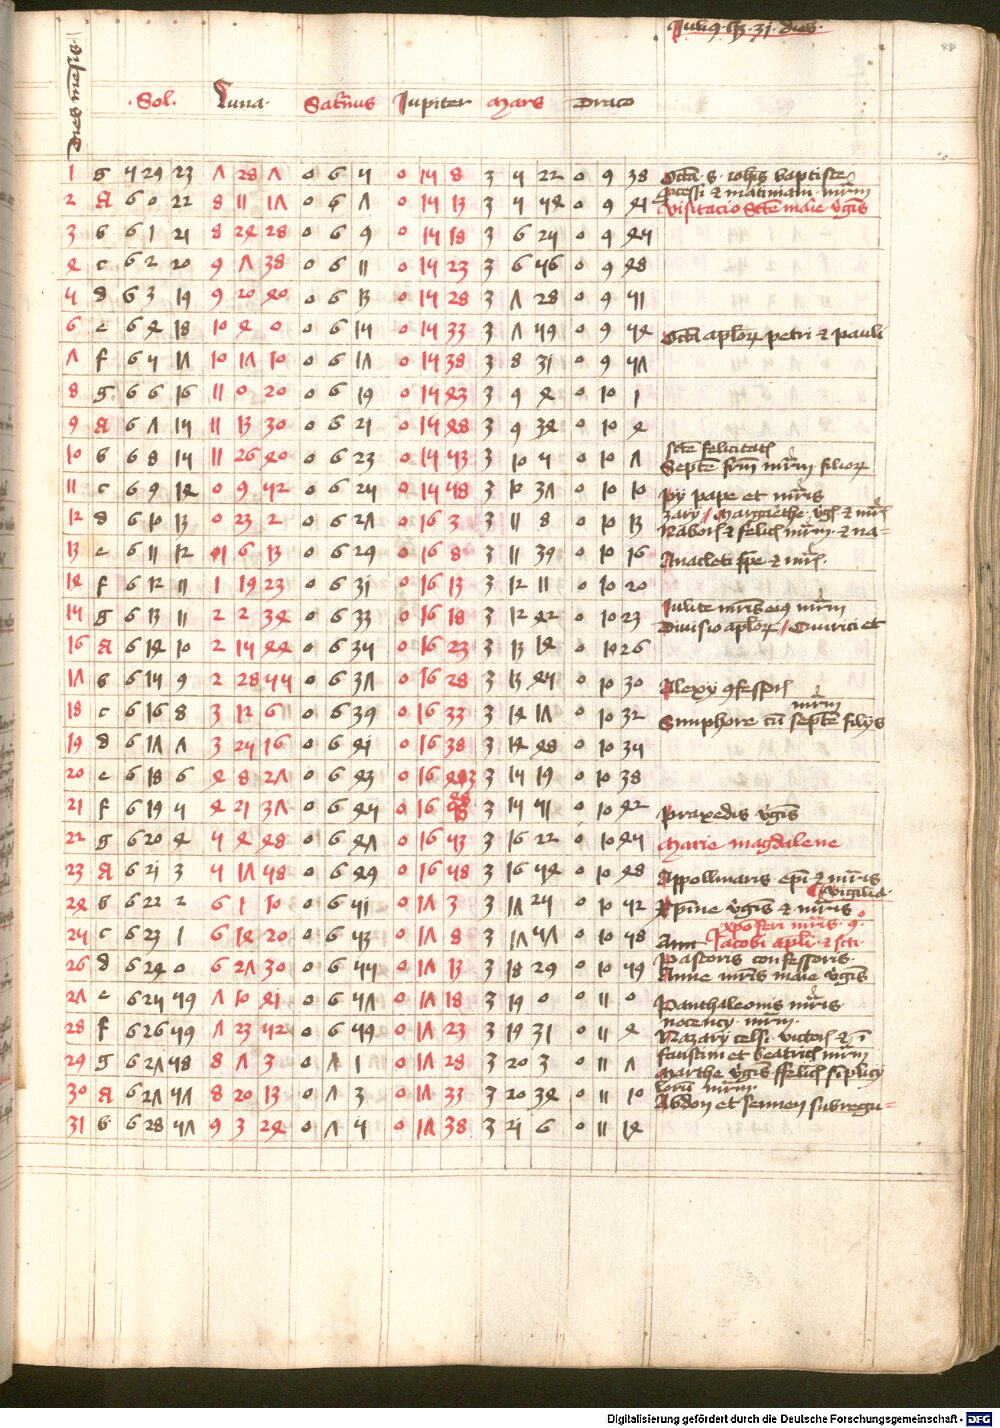 Julius hz 31 dies
dies mēsis
Sol Luna Saturnus Jupiter Mars Draco
1 g 5 29 23 7 28 7 0 6 5 0 15 8 3 5 22 0 9 38 Octā s Johis baptiste
pcessi & matiniani mrm
2 A 6 0 22 8 11 17 0 6 7 0 15 13 3 5 54 0 9 41 Visitacio Scte marie vgis
3 b 6 1 21 8 24 28 0 6 9 0 15 18 3 6 25 0 9 45
4 c 6 2 20 9 7 38 0 6 11 0 15 23 3 6 56 0 9 48
5 d 6 3 19 9 20 40 0 6 13 0 15 28 3 7 28 0 9 51
6 e 6 4 18 10 4 0 0 6 15 0 15 33 3 7 59 0 9 54 Octā aplorꝝ petri & pauli
7 f 6 5 17 10 17 10 0 6 17 0 15 38 3 8 31 0 9 57
8 g 6 6 16 11 0 20 0 6 19 0 15 43 3 9 4 0 10 1
9 A 6 7 15 11 13 30 0 6 21 0 15 48 3 9 34 0 10 4
scte felicitatis
10 b 6 8 15 11 26 40 0 6 23 0 15 53 3 10 5 0 10 7 Septē frm mrm filiorꝝ
11 c 6 9 14 0 9 52 0 6 25 0 15 58 3 10 37 0 10 10 Py pape et mris
zary / Margarethe vgis & mris
12 d 6 10 13 0 23 2 0 6 27 0 16 3 3 11 8 0 10 13 Naboris & felicis mrm & na=
13 e 6 11 12 1 6 13 0 6 29 0 16 8 3 11 39 0 10 16 Anacleti ppe & mris
14 f 6 12 11 1 19 23 0 6 31 0 16 13 3 12 11 0 10 20
Julite mris eius mrm
15 g 6 13 11 2 2 34 0 6 33 0 16 18 3 12 42 0 10 23 Divisio aplorꝝ / Quirici et
16 A 6 14 10 2 15 44 0 6 35 0 16 23 3 13 14 0 10 26
17 b 6 15 9 2 28 55 0 6 37 0 16 28 3 13 45 0 10 30 Alexy ꝯfessoris
mrm
18 c 6 16 8 3 12 6 0 6 39 0 16 33 3 14 17 0 10 32 Simphore cū septē filys
19 d 6 17 7 3 25 16 0 6 41 0 16 38 3 14 48 0 10 35
20 e 6 18 6 4 8 27 0 6 43 0 16 43 3 15 19 0 10 38
21 f 6 19 5 4 21 37 0 6 45 0 16 48 3 15 51 0 10 42 Praxedis vgis
22 g 6 20 4 5 4 48 0 6 47 0 16 53 3 16 22 0 10 45 Marie magdalene
23 A 6 21 3 5 17 58 0 6 49 0 16 58 3 16 54 0 10 48 Appollinaris epi & mris
Vigilia
24 b 6 22 2 6 1 10 0 6 51 0 17 3 3 17 25 0 10 52 Xpine vgis & mris
xpoferi mris
25 c 6 23 1 6 14 20 0 6 53 0 17 8 3 17 57 0 10 58 Jacobi apli & scti
Pastoris confessoris
26 d 6 24 0 6 27 30 0 6 55 0 17 13 3 18 29 0 10 59 Anne mris marie vgis
27 e 6 25 59 7 10 41 0 6 57 0 17 18 3 19 0 0 11 0 Panthaleonis mris
nocency mrm
28 f 6 26 59 7 23 52 0 6 59 0 17 23 3 19 31 0 11 4 Nazary celsi victoris & ī
faustini et beatricis mrm
29 g 6 27 58 8 7 3 0 7 1 0 17 28 3 20 3 0 11 7 Marthe vgis ffelicis siplicy
30 A 6 27 57 8 20 13 0 7 3 0 17 33 3 20 34 0 11 10 Abdon et sennen subregu=
lorū mrm
31 b 6 28 57 9 3 24 0 7 5 0 17 38 3 21 6 0 11 14
Digitalisierung gefördert durch die Deutsche Forschungsgemeinschaft - DFG